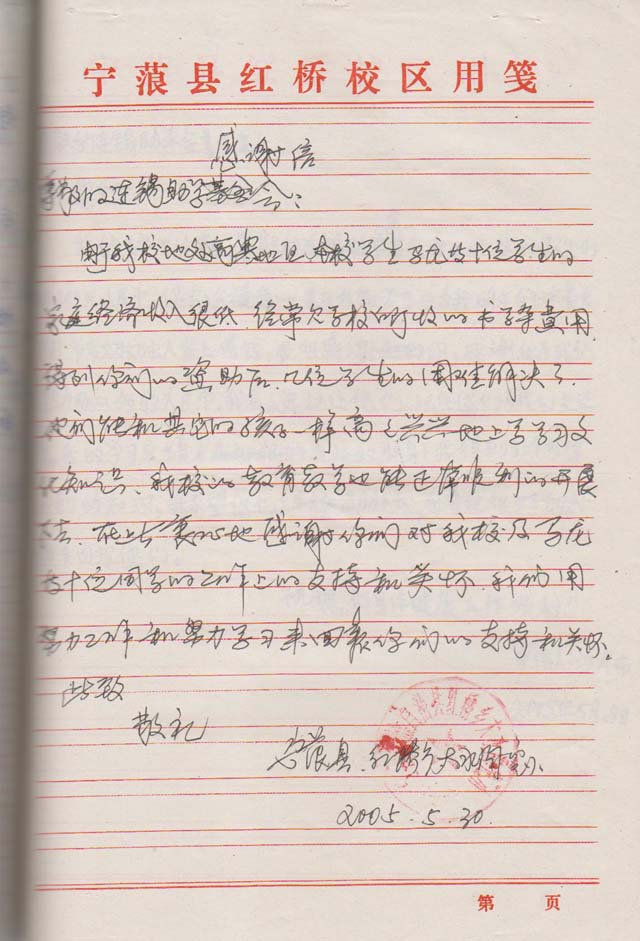 宁蒗县红桥校区用笺
感谢信
的连锡助学基金会：
由于我校地处高寒地区，本校学生子龙等十位学生的
家庭经济收入很低，经常欠学校所收的书学杂费用，
得到你们的资助后，几位学生的困难解决了，
他们能和其它的孩子一样高高兴兴地上学学习文
化知识，我校的教育教学也能正常顺利的开展
去，在此衷心地感谢你们对我校及子龙
等十位同学的工作上的支持和关怀，我们用
努力工作和努力学习来回报你们的支持和关怀。
此致
敬礼
宁蒗县红桥乡大
2005.5.30.
第 页